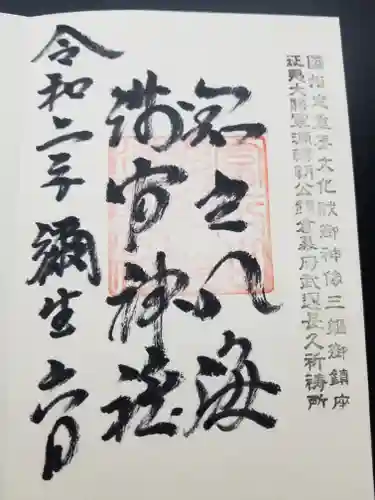 國指定重要文化財御神像三軀御鎮座
征夷大將軍源頼朝公鎌倉幕府武運長久祈祷所
之八海
宮神社
令和二年 彌生 六日